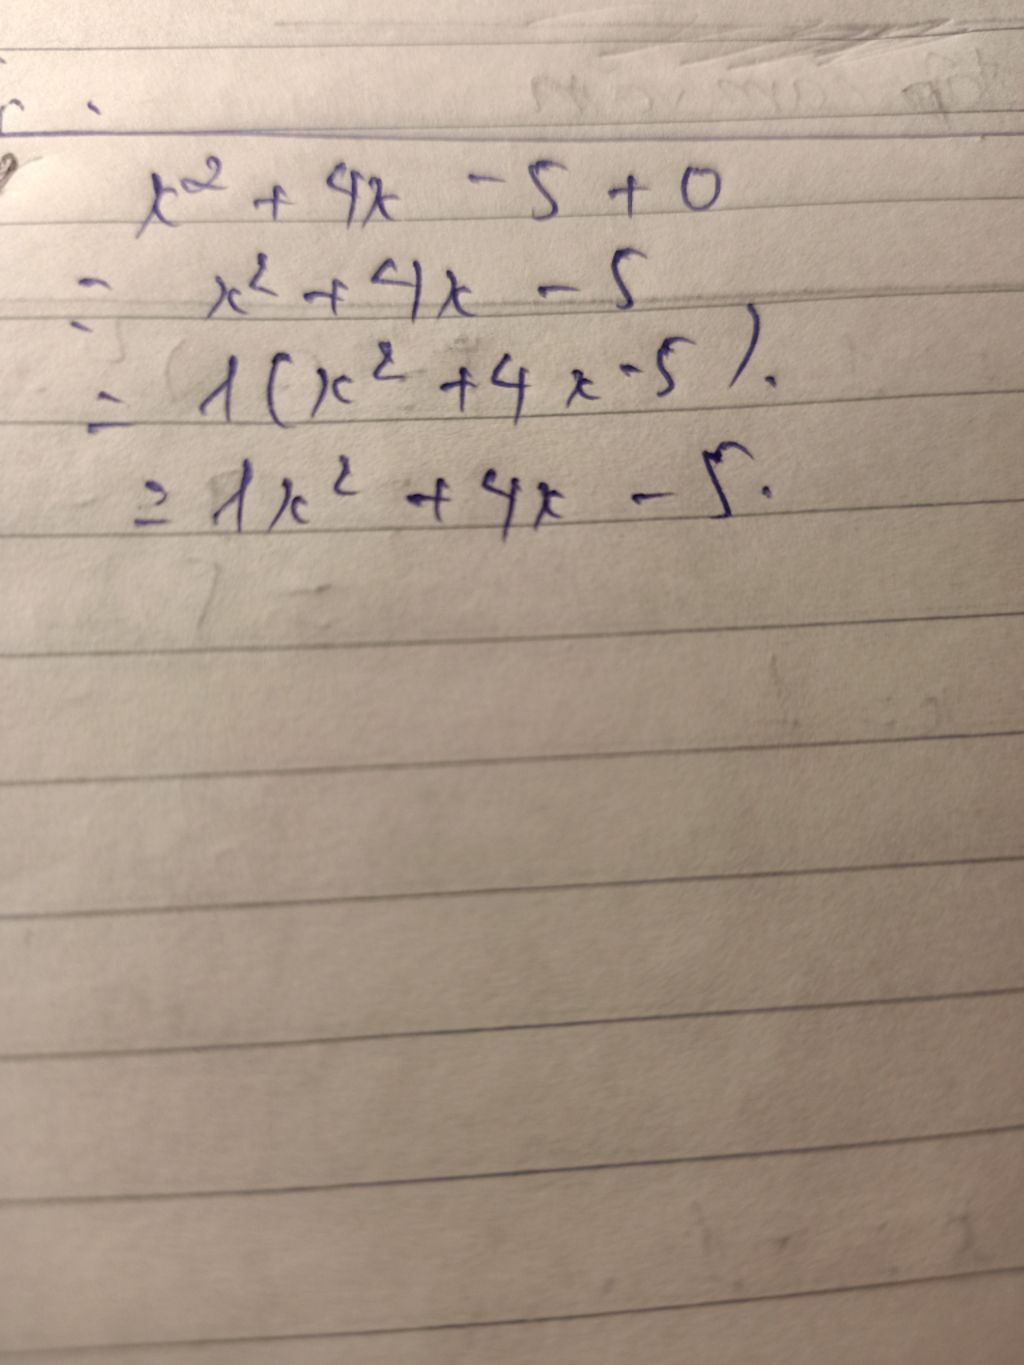 x² + 4x - 5 + 0
= x² + 4x - 5
= 1(x² + 4x - 5).
= 1x² + 4x - 5.